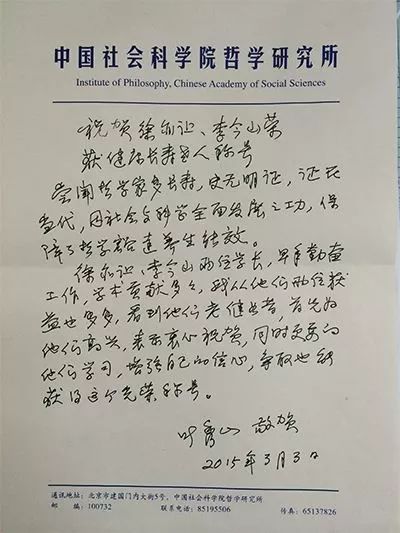 中国社会科学院哲学研究所
Institute of Philosophy, Chinese Academy of Social Sciences
祝贺徐亦让、李今山荣
获健康长寿老人称号
尝闻哲学家多长寿,史无明证,证在
当代,因社会与科学全面发展之功,保
障了哲学家道养生结效。
徐亦让、李今山两位学长,早年勤奋
工作,学术贡献多多,我从他们两位获
益也多多,看到他们老健者,首先为
他们高兴,表示衷心祝贺,同时更要向
他们学习,增强自己的信心,争取也能
获得这个光荣称号。
叶秀山 敬贺
2015年3月3日
通讯地址:北京市建国门内大街5号,中国社会科学院哲学研究所
邮 编:100732 联系电话:85195506 传真:65137826